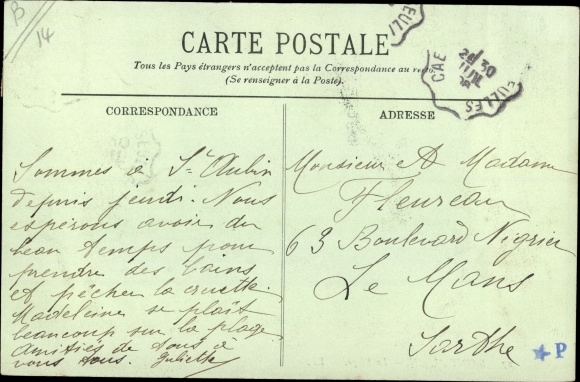 B
14
CARTE POSTALE
Tous les Pays étrangers n'acceptent pas la Correspondance au recto
(Se renseigner à la Poste).
CORRESPONDANCE
Sommes à St Aubin
depuis jeudi. Nous
espérons avoir du
beau temps pour
prendre des bains
et pêcher la crevette.
Madeleine se plaît
beaucoup sur la plage
Amitiés de tous à
vous tous. Juliette
ADRESSE
Monsieur et Madame
Fleureau
63 Boulevard Négrier
Le Mans
Sarthe
CAE
EULLES
EULL
P